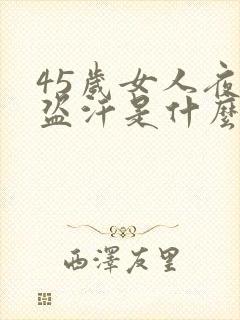 45歲女人夜
盜汗是什麼
西澤友里